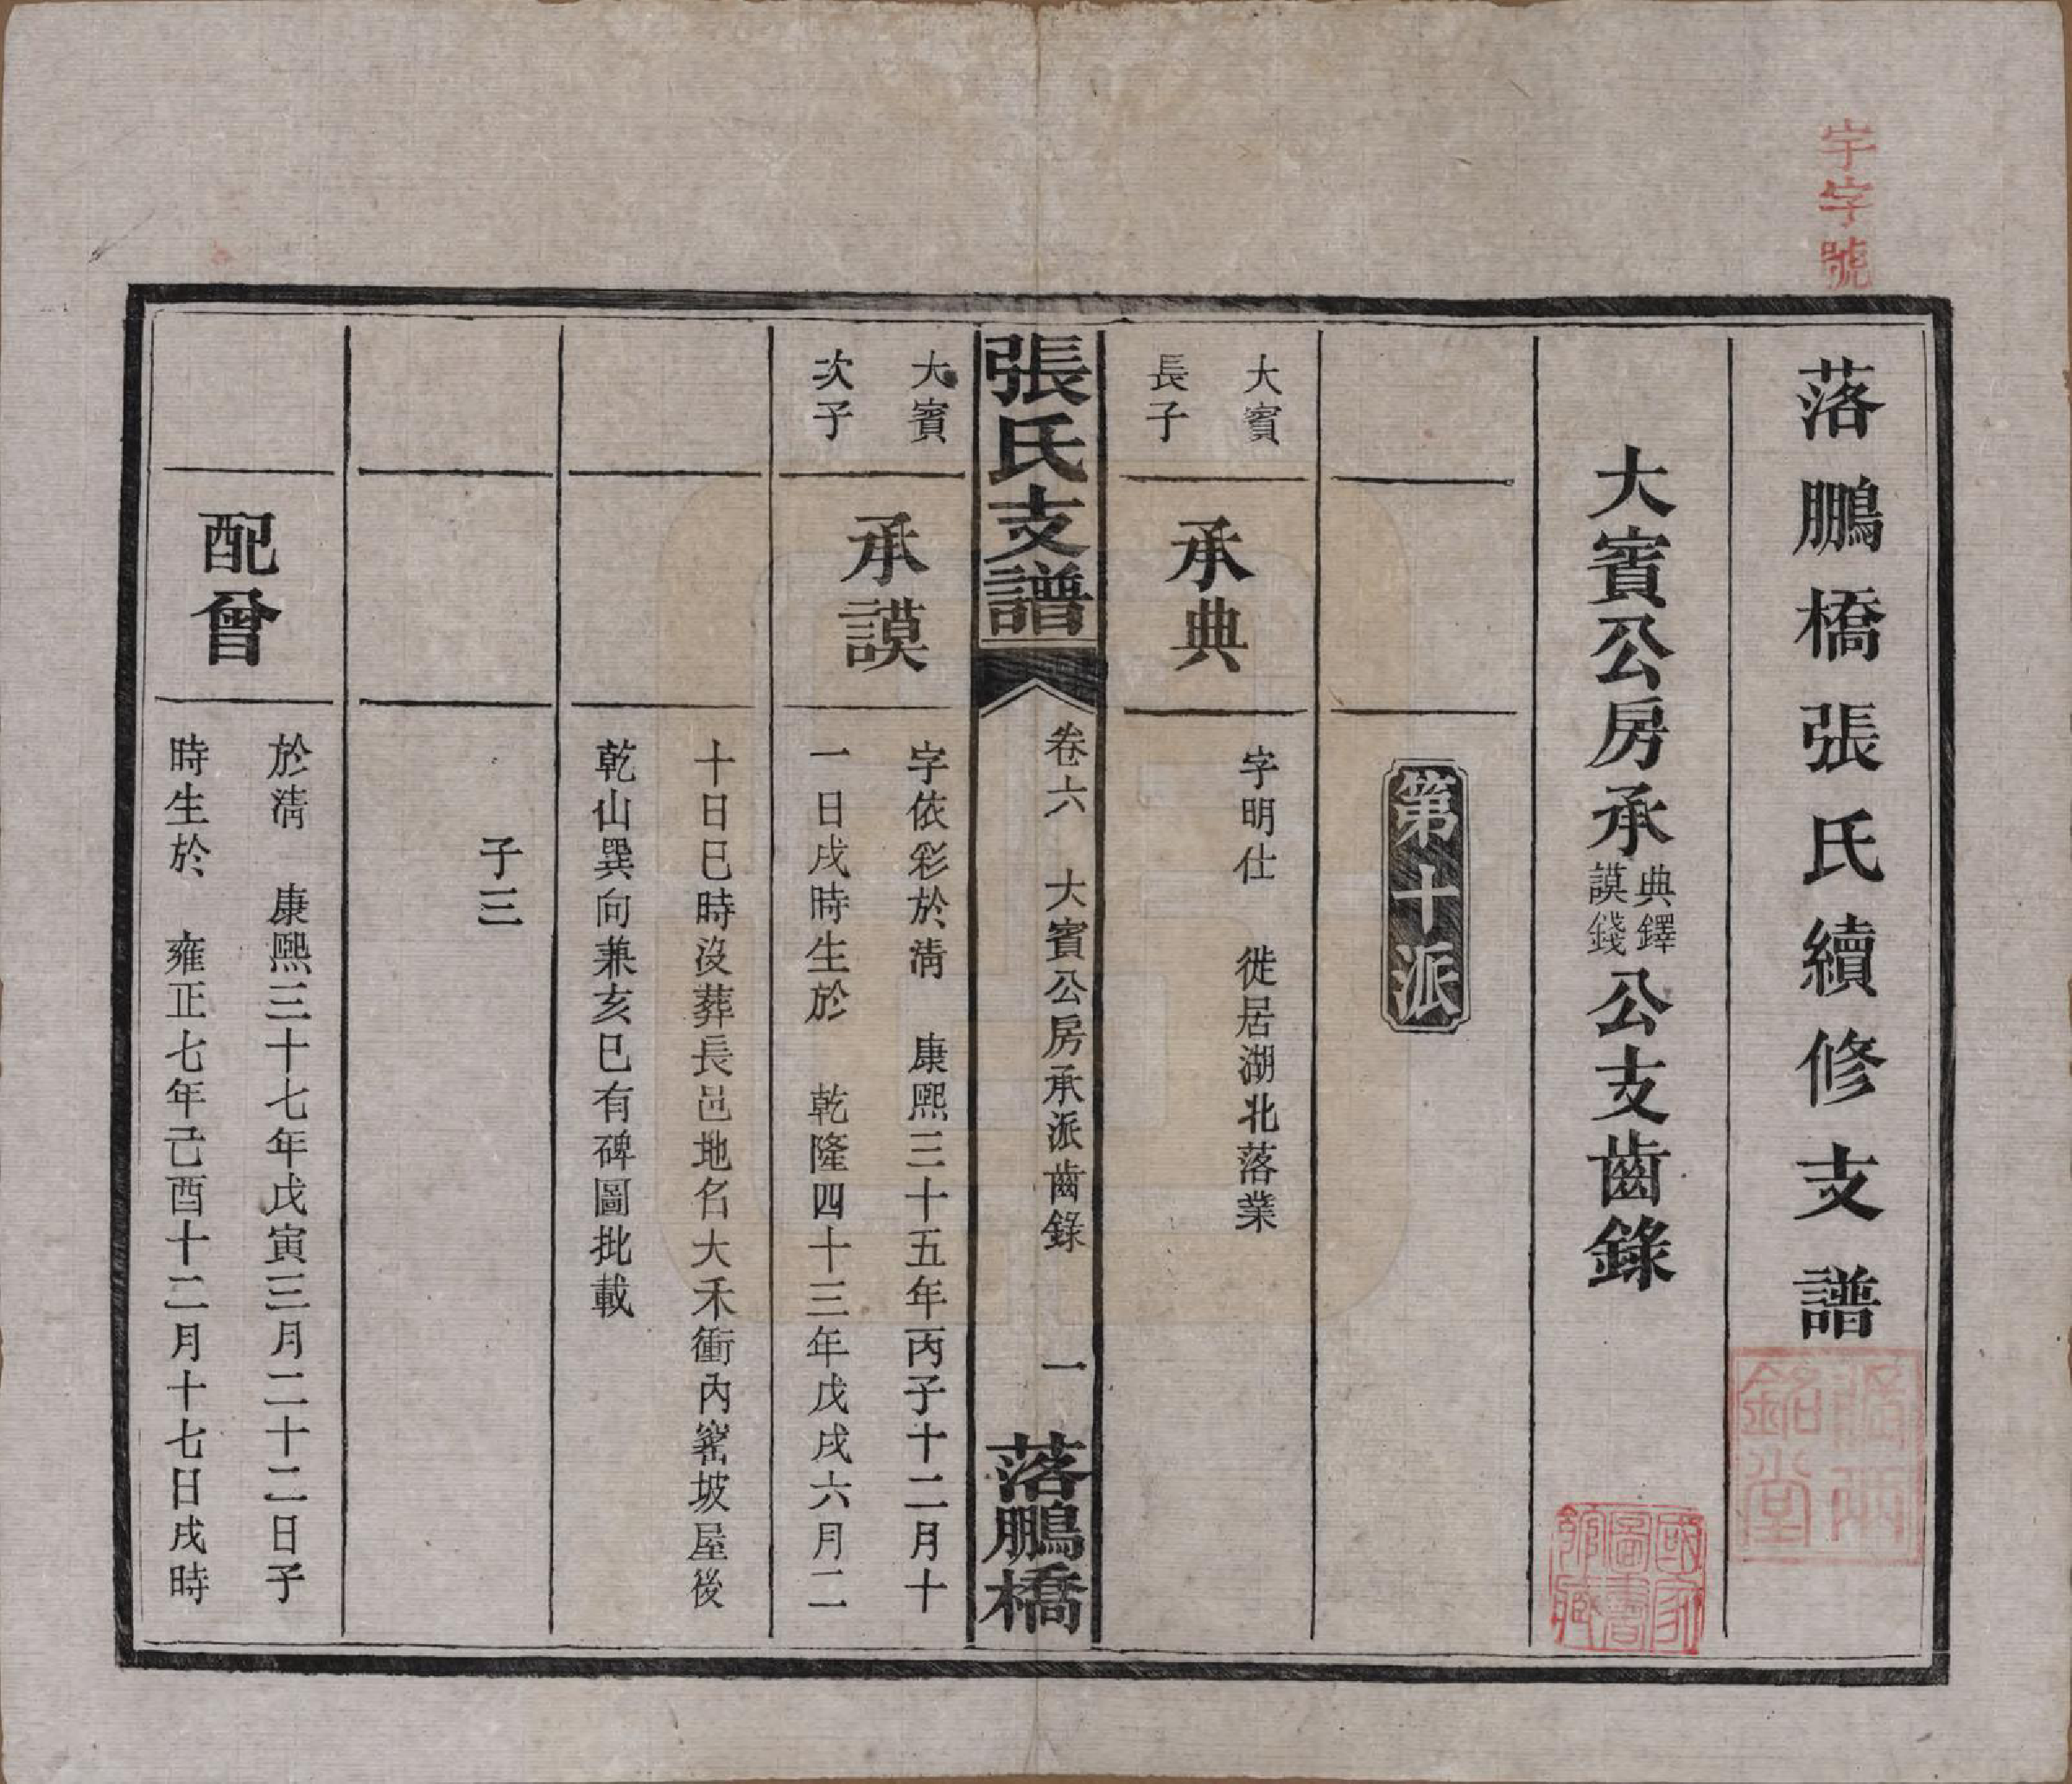 宇字號
落鵬橋張氏續修支譜
大賓公房承典鐸謨錢公支齒錄
第十派
大賓
長子
承典
字明仕　徙居湖北落業
張氏支譜
卷六　大賓公房承派齒錄　一
落鵬橋
大賓
次子
承謨
字依彩於淸　康熙三十五年丙子十二月十
一日戌時生於　乾隆四十三年戊戌六月二
十日巳時沒葬長邑地名大禾衝內窰坡屋後
乾山巽向兼亥巳有碑圖批載
子三
配曾
於淸　康熙三十七年戊寅三月二十二日子
時生於　雍正七年己酉十二月十七日戌時
國家圖書館藏